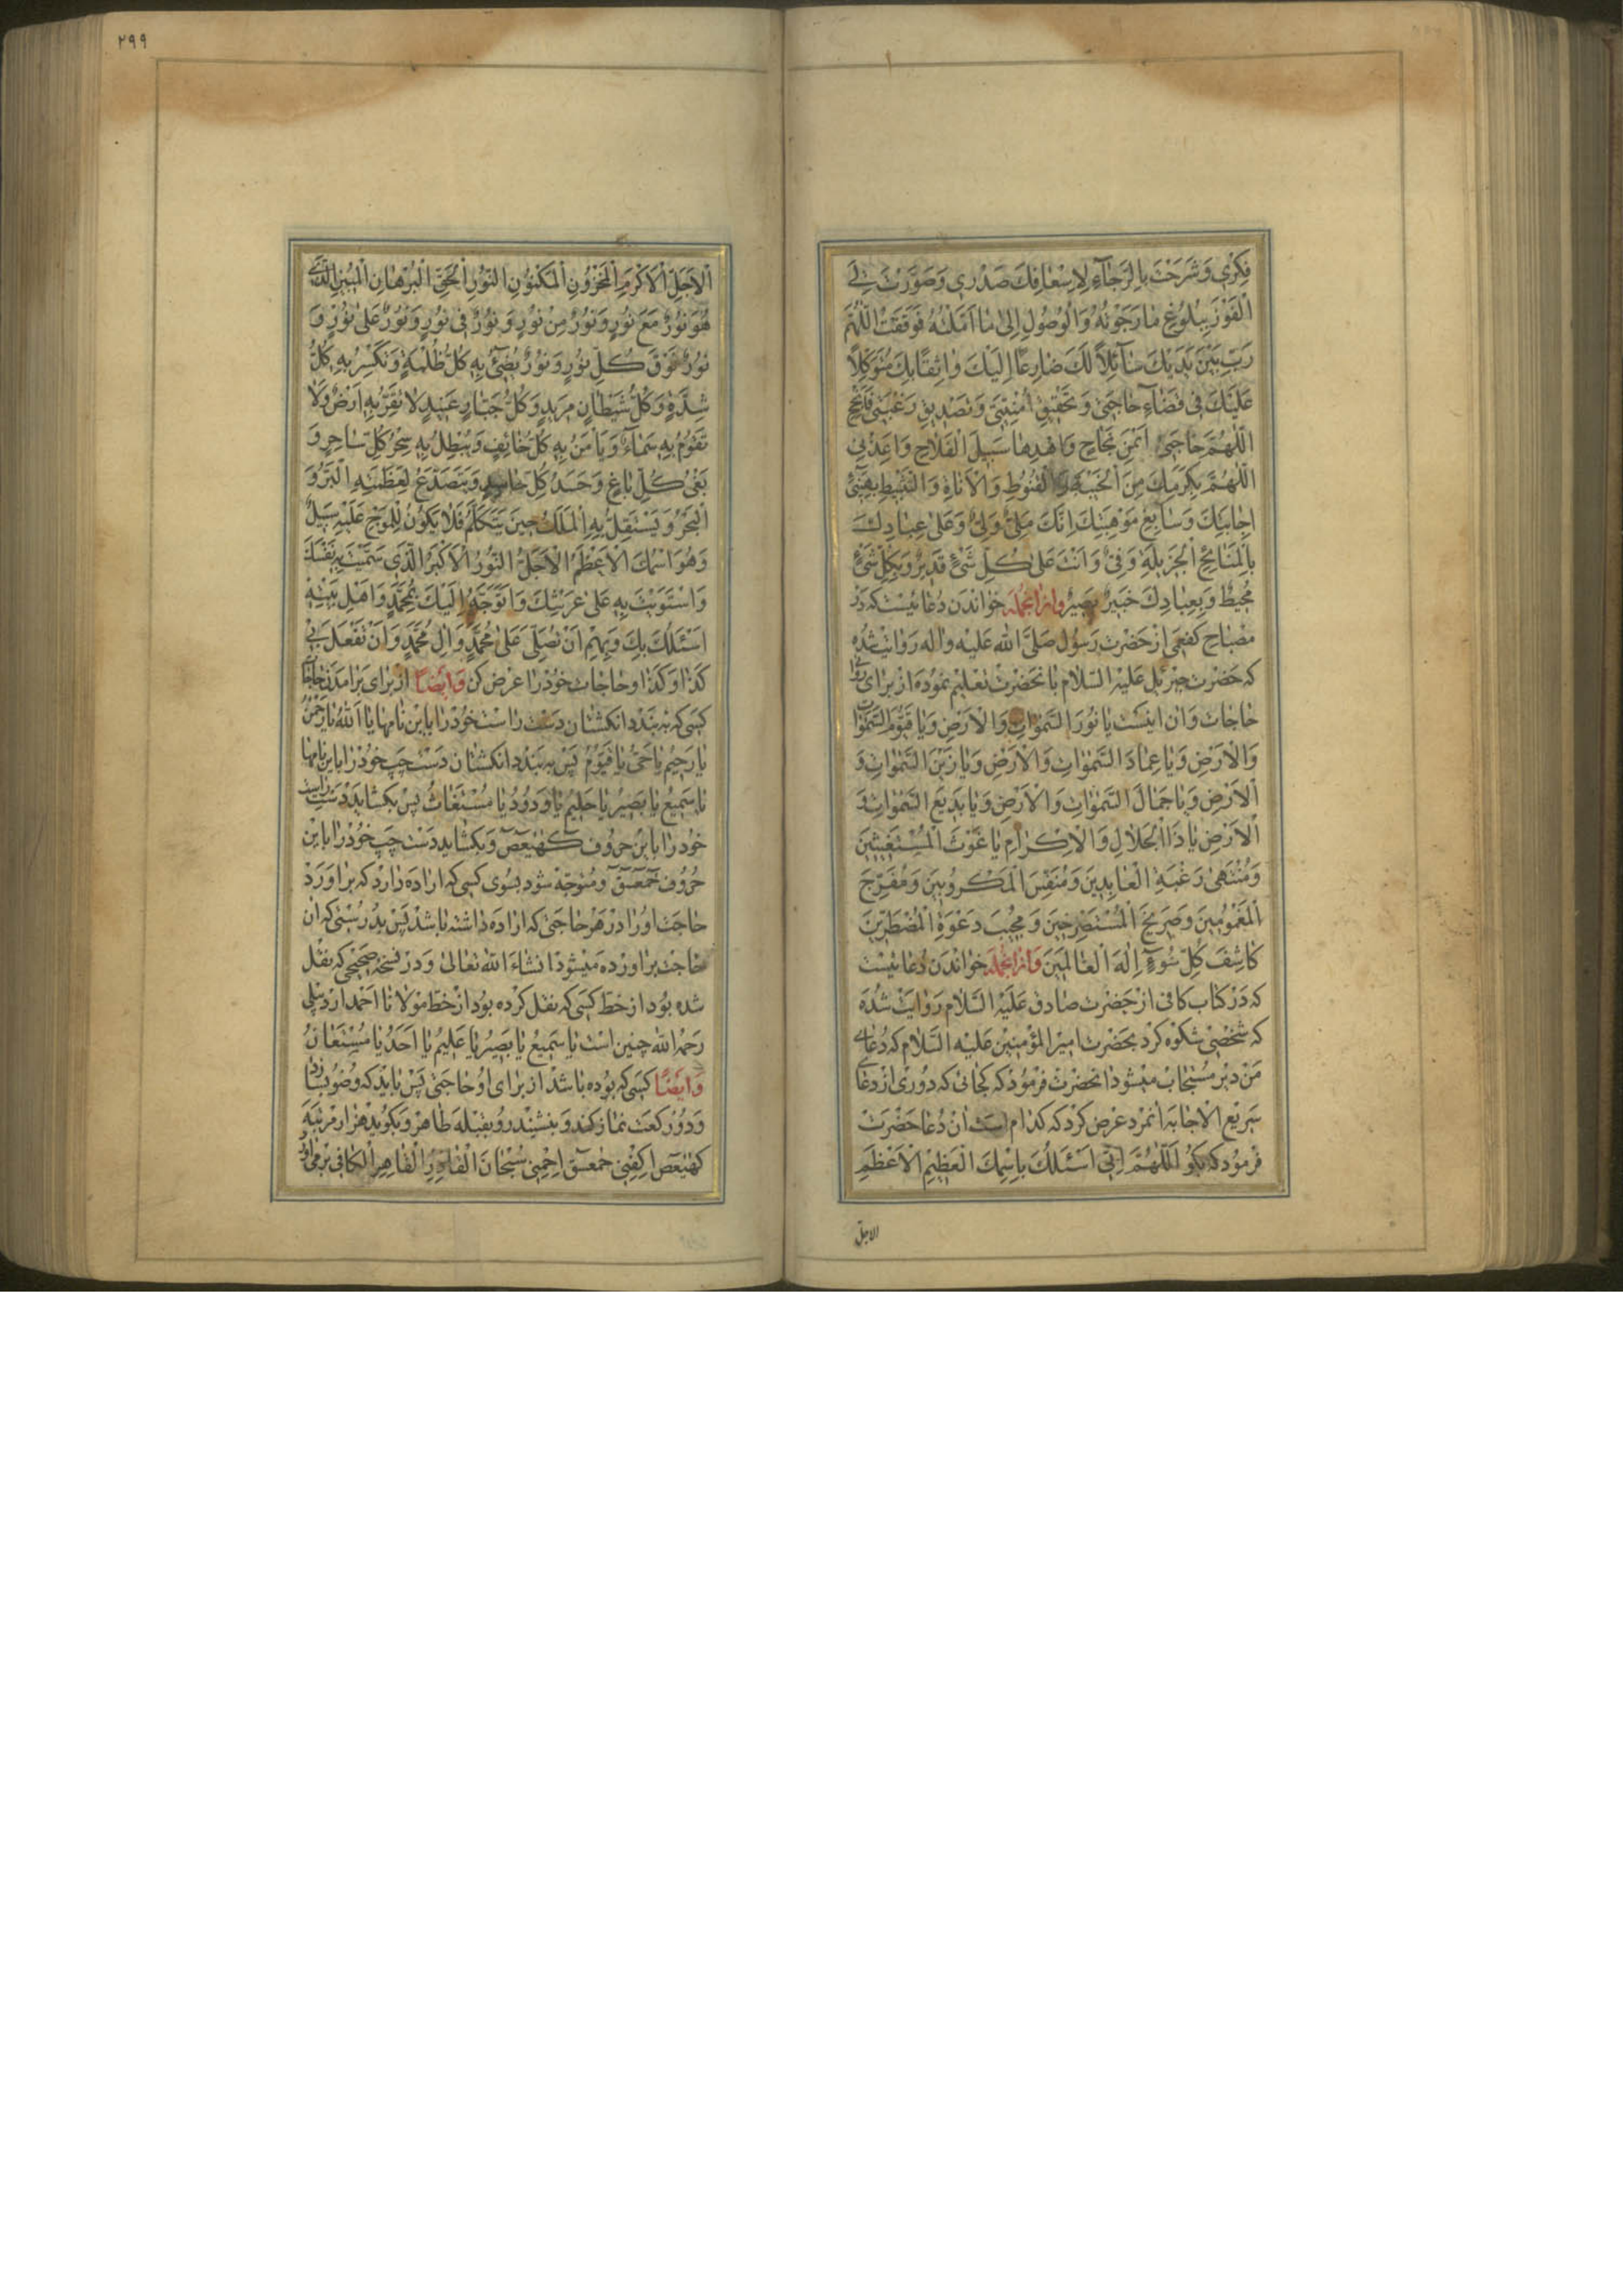 فِكْرِي وَشَرَحْتَ بِالرَّجَاءِ لِإِسْعَافِكَ صَدْرِي وَصَوَّرْتَ لِيَ
الْفَوْزَ بِبُلُوغِ مَا رَجَوْتُهُ وَالْوُصُولِ إِلَى مَا أَمَّلْتُهُ فَوَقَفْتُ اللَّهُمَّ
رَبِّ بَيْنَ يَدَيْكَ سَائِلًا لَكَ ضَارِعًا إِلَيْكَ وَاثِقًا بِكَ مُتَوَكِّلًا
عَلَيْكَ فِي قَضَاءِ حَاجَتِي وَتَحْقِيقِ أُمْنِيَّتِي وَتَصْدِيقِ رَغْبَتِي فَأَنْجِحِ
اللَّهُمَّ حَاجَتِي أَيْمَنَ نَجَاحٍ وَاهْدِهَا سَبِيلَ الْفَلَاحِ وَأَعِذْنِي
اللَّهُمَّ بِكَرَمِكَ مِنَ الْخَيْبَةِ وَالْقُنُوطِ وَالْأَنَاةِ وَالتَّثْبِيطِ بِهَنِيءِ
إِجَابَتِكَ وَسَابِغِ مَوْهِبَتِكَ إِنَّكَ مَلِيٌّ وَلِيٌّ وَعَلَى عِبَادِكَ
بِالْمَنَائِحِ الْجَزِيلَةِ وَفِيٌّ وَأَنْتَ عَلَى كُلِّ شَيْءٍ قَدِيرٌ وَبِكُلِّ شَيْءٍ
مُحِيطٌ وَبِعِبَادِكَ خَبِيرٌ بَصِيرٌ وازانجمله خواندن دعائیست که در
مصباح کفعمی از حضرت رسول صلّی الله علیه واله روایت شده
که حضرت جبرئیل علیه السّلام بانحضرت تعلیم نموده از برای روا
حاجات وان اینست یا نُورَ السَّمٰوَاتِ وَالْأَرْضِ وَيَا قَيُّومَ السَّمٰوَاتِ
وَالْأَرْضِ وَيَا عِمَادَ السَّمٰوَاتِ وَالْأَرْضِ وَيَا زَيْنَ السَّمٰوَاتِ وَ
الْأَرْضِ وَيَا جَمَالَ السَّمٰوَاتِ وَالْأَرْضِ وَيَا بَدِيعَ السَّمٰوَاتِ وَ
الْأَرْضِ يَا ذَا الْجَلَالِ وَالْإِكْرَامِ يَا غَوْثَ الْمُسْتَغِيثِينَ
وَمُنْتَهَى رَغْبَةِ الْعَابِدِينَ وَمُنَفِّسَ الْمَكْرُوبِينَ وَمُفَرِّجَ
الْمَغْمُومِينَ وَصَرِيخَ الْمُسْتَصْرِخِينَ وَمُجِيبَ دَعْوَةِ الْمُضْطَرِّينَ
كَاشِفَ كُلِّ سُوءٍ إِلٰهَ الْعَالَمِينَ وازانجمله خواندن دعائیست
که در کتاب کافی از حضرت صادق علیه السّلام روایت شده
که شخصی شکوه کرد بحضرت امیر المؤمنین علیه السّلام که دعای
من دیر مستجاب میشود انحضرت فرمود که کجائی که دوری از دعای
سریع الاجابه انمرد عرض کرد که کدام است ان دعا حضرت
فرمود که بکو اللَّهُمَّ إِنِّي أَسْئَلُكَ بِاسْمِكَ الْعَظِيمِ الْأَعْظَمِ
الاجلّ
۲۹۹
الْأَجَلِّ الْأَكْرَمِ الْمَخْزُونِ الْمَكْنُونِ النُّورِ الْحَقِّ الْبُرْهَانِ الْمُبِينِ الَّذِي
هُوَ نُورٌ مَعَ نُورٍ وَنُورٌ مِنْ نُورٍ وَنُورٌ فِي نُورٍ وَنُورٌ عَلَى نُورٍ وَ
نُورٌ فَوْقَ كُلِّ نُورٍ وَنُورٌ يُضِيءُ بِهِ كُلُّ ظُلْمَةٍ وَتُكْسَرُ بِهِ كُلُّ
شِدَّةٍ وَكُلُّ شَيْطَانٍ مَرِيدٍ وَكُلُّ جَبَّارٍ عَنِيدٍ لَا تَقَرُّ بِهِ أَرْضٌ وَلَا
تَقُومُ بِهِ سَمَاءٌ وَيَأْمَنُ بِهِ كُلُّ خَائِفٍ وَيُبْطِلُ بِهِ سِحْرُ كُلِّ سَاحِرٍ وَ
بَغْيُ كُلِّ بَاغٍ وَحَسَدُ كُلِّ حَاسِدٍ وَيَتَصَدَّعُ لِعَظَمَتِهِ الْبَرُّ وَ
الْبَحْرُ وَيَسْتَقِلُّ بِهِ الْمَلَكُ حِينَ يَتَكَلَّمُ فَلَا يَكُونُ لِلْمَوْجِ عَلَيْهِ سَبِيلٌ
وَهُوَ اسْمُكَ الْأَعْظَمُ الْأَجَلُّ النُّورُ الْأَكْبَرُ الَّذِي سَمَّيْتَ بِهِ نَفْسَكَ
وَاسْتَوَيْتَ بِهِ عَلَى عَرْشِكَ وَأَتَوَجَّهُ إِلَيْكَ بِمُحَمَّدٍ وَأَهْلِ بَيْتِهِ
أَسْئَلُكَ بِكَ وَبِهِمْ أَنْ تُصَلِّيَ عَلَى مُحَمَّدٍ وَآلِ مُحَمَّدٍ وَأَنْ تَفْعَلَ بِي
کذا وکذا وحاجات خود را عرض کن وایضا از برای برامدن حاجات
کسی که به بندد انکشتان دست راست خود را باین نامها یا الله یا رحمن
یا رحیم یا حیّ یا قیّوم پس به بندد انکشتان دست چپ خود را باین نامها
یا سمیع یا بصیر یا حلیم یا ودود یا مستغاث پس بکشاید دست راست
خود را باین حروف کهیعص وبکشاید دست چپ خود را باین
حروف حمعسق ومتوجّه شود بسوی کسی که اراده دارد که براورد
حاجت او را در هر حاجتی که اراده داشته باشد پس بدرستی که ان
حاجت براورده میشود انشاء الله تعالی ودر نسخهٔ صحیحی که نقل
شده بود از خطّ کسی که نقل کرده بود از خطّ مولانا احمد اردبیلی
رحمه الله چنین است یا سمیع یا بصیر یا علیم یا احد یا مستعان
وایضا کسی که بوده باشد از برای او حاجتی پس باید که وضو بسازد
ودو رکعت نماز کند وبنشیند رو بقبله طاهر وبکوید هزار مرتبه
کهیعص اکفنی حمعسق احمنی سبحان القادر القاهر الکافی